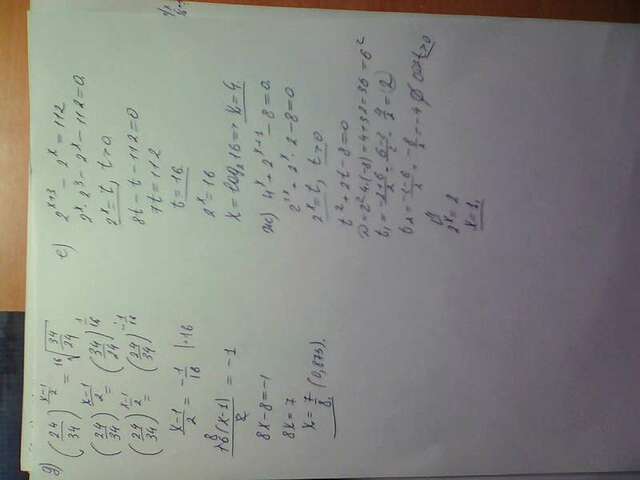 д) (24/34)^((x-1)/2) = ¹⁶√(34/24)
(24/34)^((x-1)/2) = (34/24)^(1/16)
(24/34)^((x-1)/2) = (24/34)^(-1/16)
(x-1)/2 = -1/16 |·16
16(x-1)/2 = -1
8x-8=-1
8x=7
x=7/8 (0,875).
е) 2^(x+3) - 2^x = 112
2^x·2^3-2^x-112=0.
2^x=t, t>0
8t-t-112=0
7t=112
t=16.
2^x=16
x=log₂16=> x=4.
ж) 4^x+2^(x+1)-8=0.
2^(2x)+2^x·2-8=0
2^x=t, t>0
t²+2t-8=0
D=2²-4·(-8)=4+32=36=6²
t₁=(-2+6)/2=(6-2)/2=4/2=2
t₂=(-2-6)/2=-8/2=-4 ∅ t>0
2^x=2
x=1.